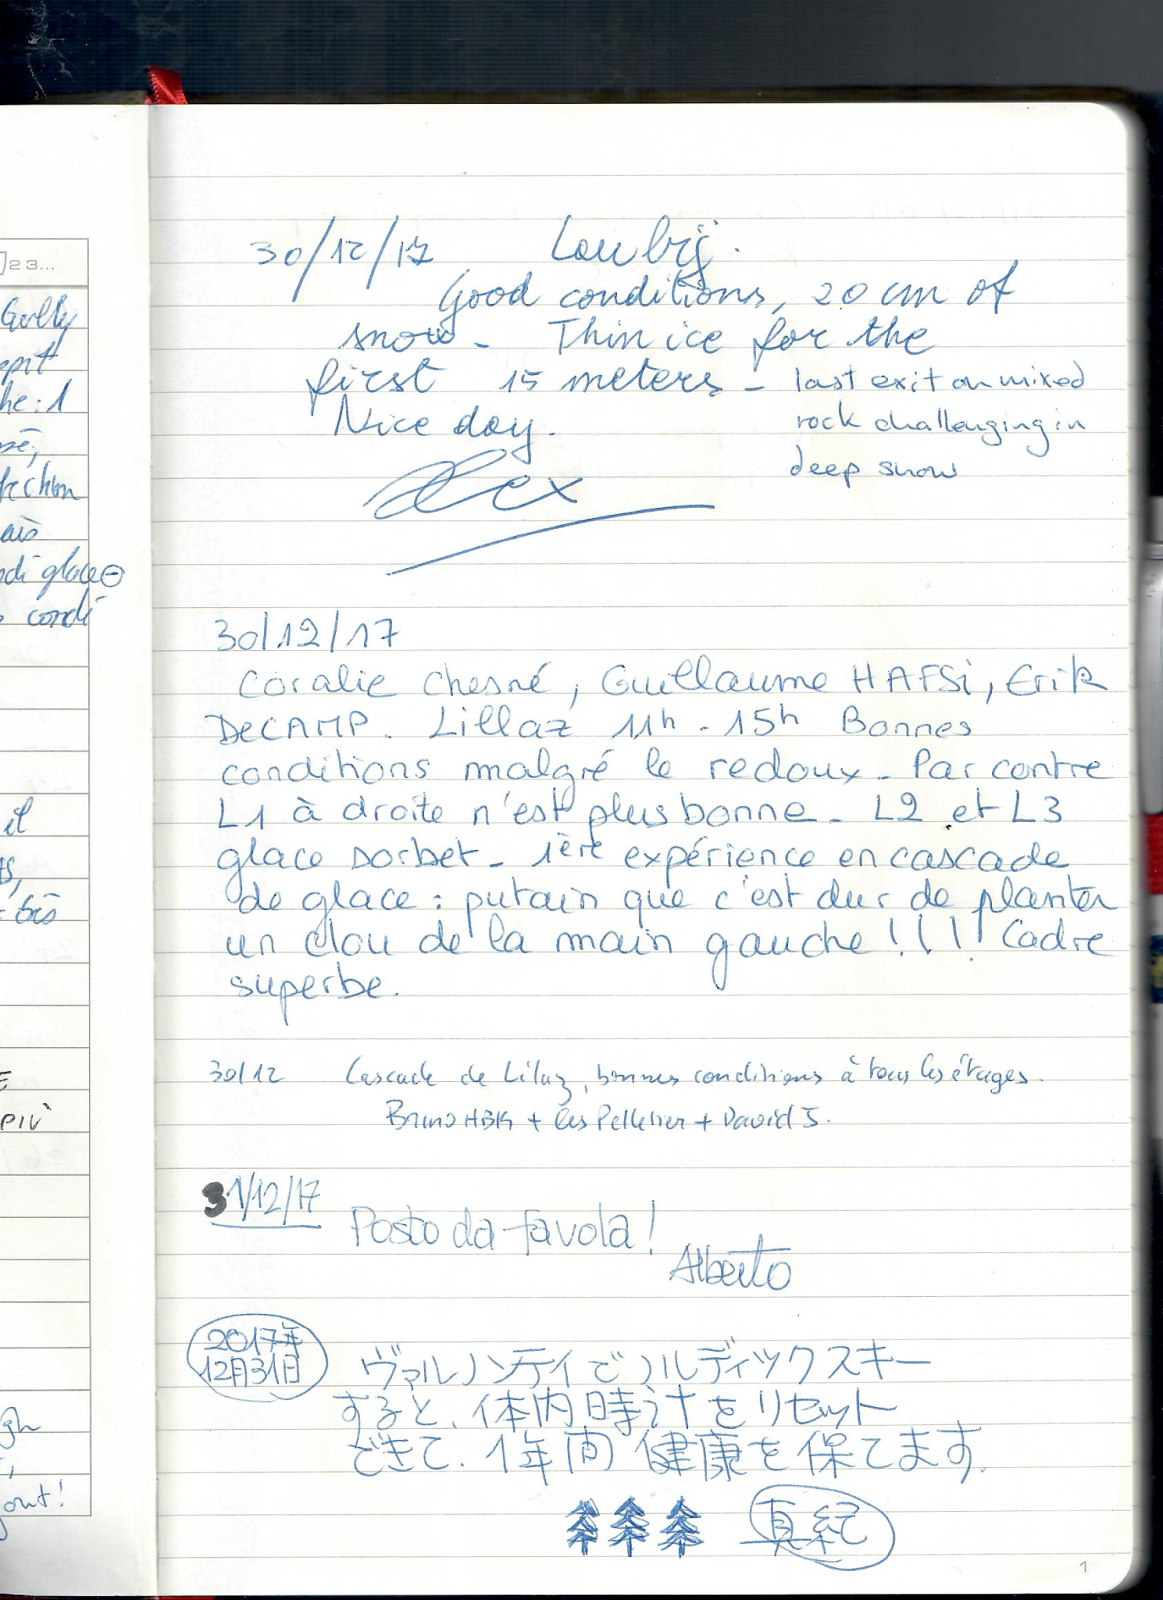 23...
Gully
he: 1
glace ⊖
condi
il
PIU'
gout!
30/12/17 Loubij.
Good conditions, 20 cm of
snow - Thin ice for the
first 15 meters - last exit on mixed
Nice day. rock challenging in
deep snow
Alex
30/12/17
Coralie Chesné, Guillaume HAFSi, Erik
DECAMP. Lillaz 11h - 15h Bonnes
conditions malgré le redoux - Par contre
L1 à droite n'est plus bonne - L2 et L3
glace sorbet - 1ère expérience en cascade
de glace : putain que c'est dur de planter
un clou de la main gauche !!!! Cadre
superbe.
30/12 Cascade de Lilaz, bonnes conditions à tous les étages.
Bruno HBK + les Pelletier + David J.
31/12/17
Posto da favola!
Alberto
2017年
12月31日
ヴァルノンティでノルディックスキー
すると、体内時計をリセット
できて、1年間健康を保てます.
真紀
1